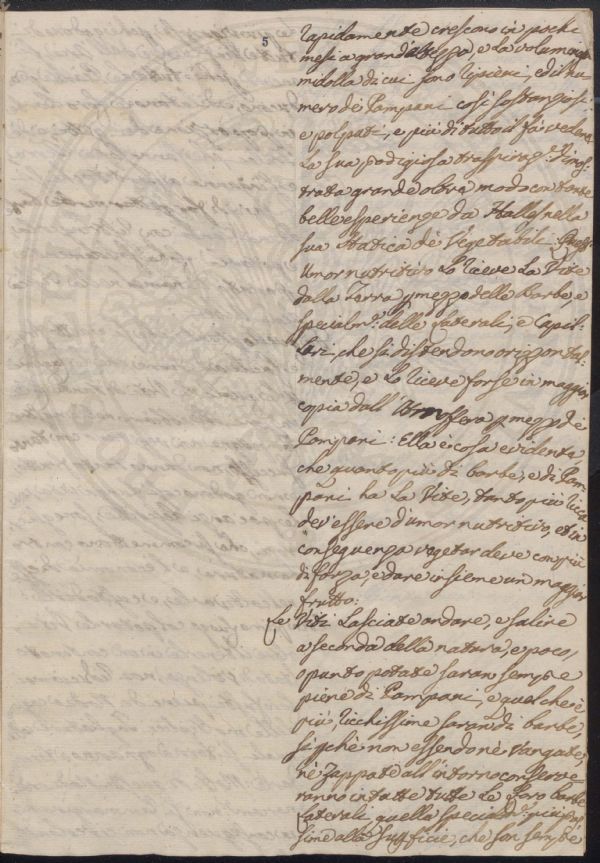 5
rapidamente crescono in pochi
mesi a grand'altezza, e la voluminosa
midolla di cui sono ripieni, ed il Nu-
mero de Pampani così sostanziosi,
e polputi, e più di tutto il fà vedere
la sua prodigiosa traspiraz.e dimos-
trata grande oltre modo con tante
belle esperienze da Halles nella
sua Statica de Vegetabili. Questo
Umor nutritivo lo riceve la Vite
dalla Terra p mezzo delle Barbe, e
specialm.te delle Laterali, e Capil-
lari, che si distendono orizzontal-
mente, e lo riceve forse in maggior
copia dall' Atmosfera p mezzo de
Pampani: Ella è cosa evidente
che quanto più di barbe, e di Pam-
pani ha la Vite, tanto più ricca
dev'essere d'umor nutritivo, et in
conseguenza vegetar deve con più
di forza, e dare insieme un maggior
frutto:
Le Viti lasciate andare, e salire
a seconda della natura, e poco,
o punto potate saran sempre
piene di Pampani, e quel che è
più, ricchissime saran di barbe,
si pchè non essendo nè vangate,
nè Zappate all'intorno conserve
ranno intatte tutte le loro barbe
laterali, quelle specialm.te più pros-
sime alla supficie, che son sempre